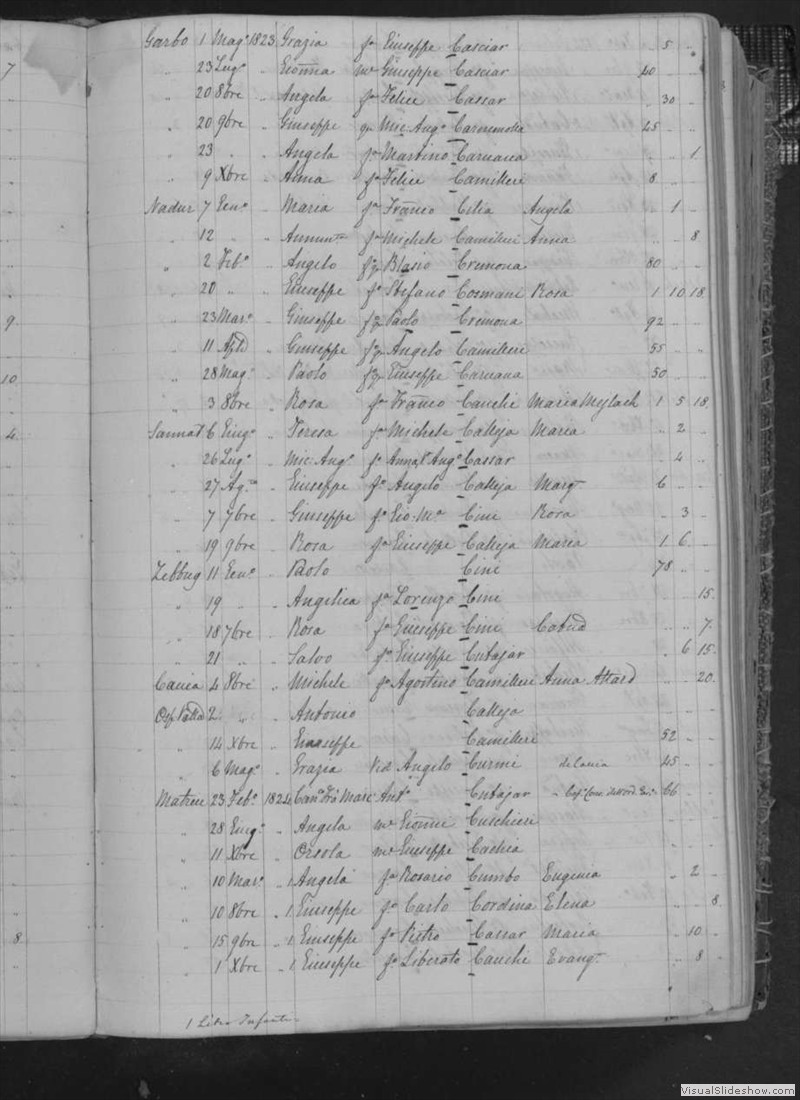 7
9
10
4
8
Garbo 1 Mag.o 1823 Grazia fa Giuseppe Casciar 5 "
" 23 Lug.o " Giõnna me Giuseppe Casciar 40
" 20 8bre " Angela fa Felice Cassar " 30 "
" 20 9bre " Giuseppe Mic: Ang.o 45 "
" 23 " " Angela fa Martino Caruana " 1
" 9 Xbre " Anna fa Felice Camilleri 8 "
Nadur 7 Gen.o " Maria fa Franco Cilia Angela " 1 "
" 12 " " Annun.ta fa Michele Camilleri Anna " " 8
" 2 Feb.o " Angelo Blasio Cremona 80 " "
" 20 " " Giuseppe fo Stefano Cosmani Rosa 1 10 18
" 23 Mar.o " Giuseppe Paolo Cremona 92 "
" 11 Aple " Giuseppe Angelo Camilleri 55 "
" 28 Mag.o " Paolo Giuseppe Caruana 50 "
" 3 8bre " Rosa fa Franco Cauchi Maria 1 5 18
Sannat 6 Giug.o " Teresa fa Michele Calleja Maria " 2 "
" 26 Lug.o " Mic: Ang.o fo Ang.o Cassar 4
" 27 Ag.to " Giuseppe fo Angelo Calleja Marg. 6 "
" 7 7bre " Giuseppe fo Gio: Ma Cini Rosa " 3 "
" 19 9bre " Rosa fa Giuseppe Calleja Maria 1 6
Zebbug 11 Gen.o " Paolo Cini 78 "
" 19 " " Angelica fa Lorenzo Cini 15
" 18 7bre " Rosa fa Giuseppe Cini " 7
" 21 " " Salvo fo Giuseppe Cutajar " 6 15
4 8bre " Michele fo Agostino Camilleri Anna Attard " 20
2 " " Antonio Calleja
" 14 Xbre " Giuseppe Camilleri 52
" 6 Mag.o " Grazia Angelo Curmi 45
23 Feb.o 1824 Marc Ant.o Cutajar 66
" 28 Giug.o " Angela me Cuschieri
" 11 Xbre " Orsola me Giuseppe
" 10 Mar.o " 1 Angela fa Rosario Cumbo Eugenia " 2 "
" 10 8bre " 1 Giuseppe fo Carlo Cordina Elena " " 8
" 15 9bre " 1 Giuseppe fo Pietro Cassar Maria " 10 "
" 1 Xbre " 1 Giuseppe fo Liberato Cauchi Evang. " 8
1 Libro
VisualSlideshow.com